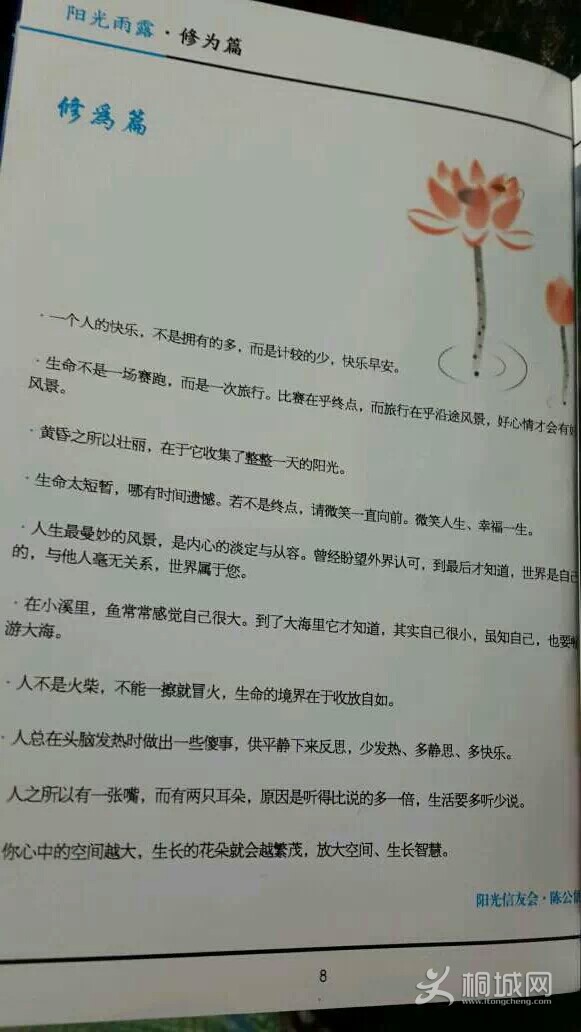 阳光雨露·修为篇
修為篇
·一个人的快乐，不是拥有的多，而是计较的少，快乐早安。
·生命不是一场赛跑，而是一次旅行。比赛在乎终点，而旅行在乎沿途风景，好心情才会有好
风景。
·黄昏之所以壮丽，在于它收集了整整一天的阳光。
·生命太短暂，哪有时间遗憾。若不是终点，请微笑一直向前。微笑人生、幸福一生。
·人生最曼妙的风景，是内心的淡定与从容。曾经盼望外界认可，到最后才知道，世界是自己
的，与他人毫无关系，世界属于您。
·在小溪里，鱼常常感觉自己很大。到了大海里它才知道，其实自己很小，虽知自己，也要畅
游大海。
·人不是火柴，不能一擦就冒火，生命的境界在于收放自如。
·人总在头脑发热时做出一些傻事，供平静下来反思，少发热、多静思、多快乐。
人之所以有一张嘴，而有两只耳朵，原因是听得比说的多一倍，生活要多听少说。
你心中的空间越大，生长的花朵就会越繁茂，放大空间、生长智慧。
阳光信友会·陈公
8
桐城网
www.itongcheng.com